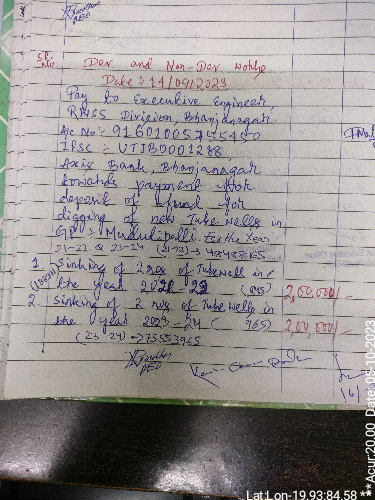 PEO
Sl. No
Dev. and Non-Dev. works
Date: 14/09/2023
Pay to Executive Engineer,
RWSS Division, Bhanjanagar
A/c No:- 916010057554
IFSC: UTIB0001288
Axis Bank, Bhanjanagar
towards payment
deposit of fund for
digging of new Tube wells in
GP: Mudulipalli. For the Year
21-22 & 23-24
1 Sinking of 2 nos of Tubewell in
the year 22 2,00,000/-
2. Sinking of 2 nos of Tube wells in
the year 2023-24 ( 965) 2,00,000/-
(23-24)
PEO
Lat:Lon-19.93:84.58
**Acur:20.00 Date: 05-10-2023